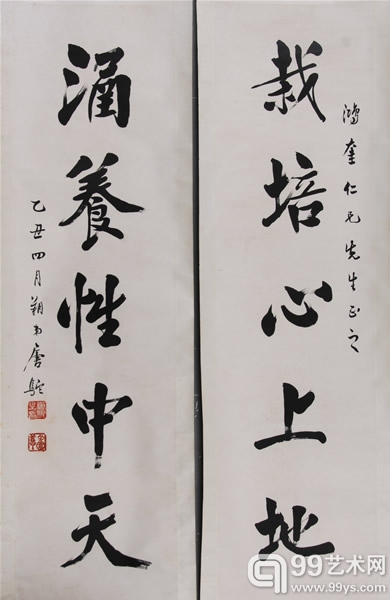 鴻奎仁兄先生正之
栽培心上地
涵養性中天
乙丑四月朔唐駝
99艺术网
www.99ys.com